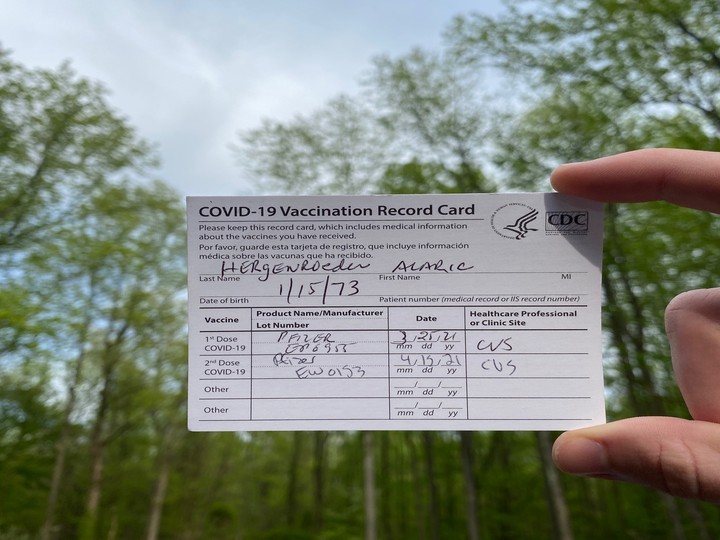 COVID-19 Vaccination Record Card
CDC
Please keep this record card, which includes medical information
about the vaccines you have received.
Por favor, guarde esta tarjeta de registro, que incluye información
médica sobre las vacunas que ha recibido.
HERgENROedeR ALARIC
Last Name First Name MI
1/15/73
Date of birth Patient number (medical record or IIS record number)
Vaccine Product Name/Manufacturer Date Healthcare Professional
Lot Number or Clinic Site
1st Dose PFIZER 3/25/21 CVS
COVID-19 mm dd yy
2nd Dose Pfizer 4/15/21 CVS
COVID-19 EW0153 mm dd yy
Other / /
mm dd yy
Other / /
mm dd yy